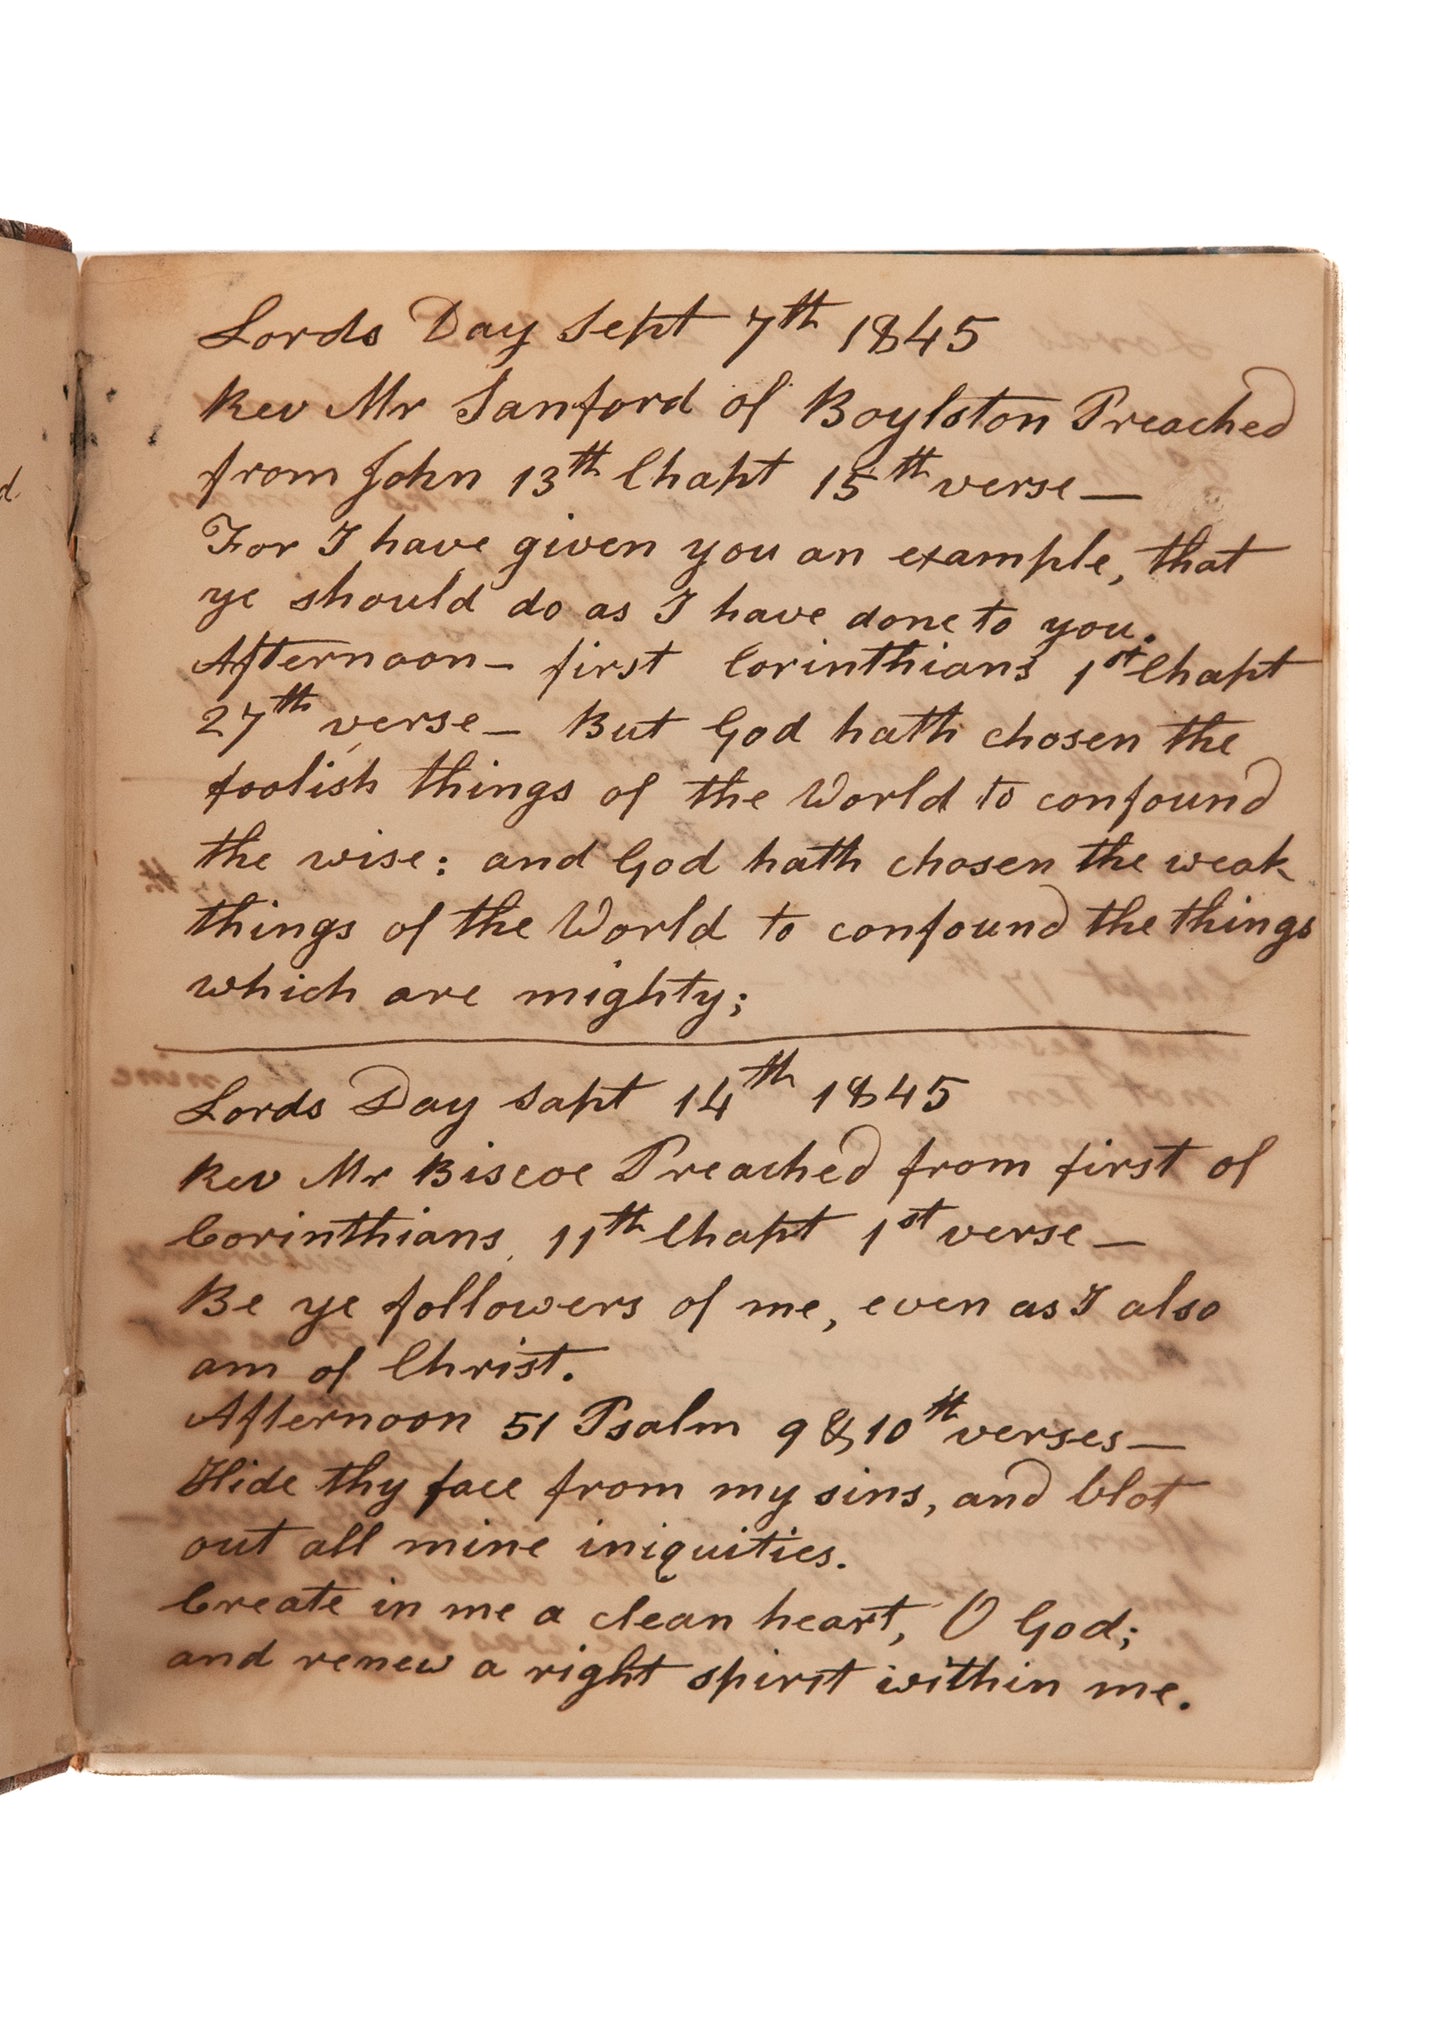 Lords Day Sept 7th 1845
Rev Mr Sanford of Boylston Preached
from John 13th Chapt 15th verse —
For I have given you an example, that
ye should do as I have done to you.
Afternoon — first Corinthians 1st Chapt
27th verse — But God hath chosen the
foolish things of the World to confound
the wise: and God hath chosen the weak
things of the World to confound the things
which are mighty;
Lords Day Sapt 14th 1845
Rev Mr Biscoe Preached from first of
Corinthians 11th Chapt 1st verse —
Be ye followers of me, even as I also
am of Christ.
Afternoon 51 Psalm 9 & 10th verses —
Hide thy face from my sins, and blot
out all mine iniquities.
Create in me a clean heart, O God;
and renew a right spirit within me.